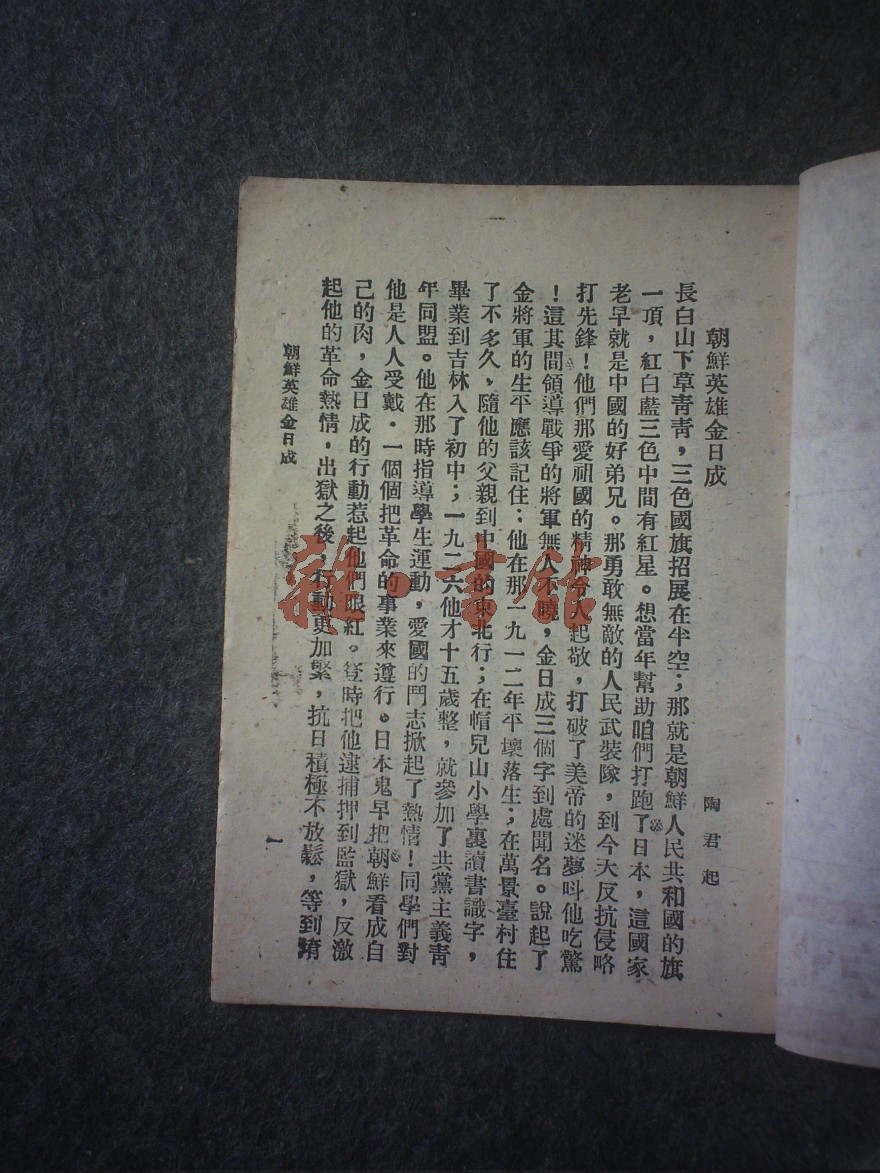 朝鮮英雄金日成
陶君起
長白山下草青青，三色國旗招展在半空；那就是朝鮮人民共和國的旗
一頂，紅白藍三色中間有紅星。想當年幫助咱們打跑了日本，這國家
老早就是中國的好弟兄。那勇敢無敵的人民武裝隊，到今天反抗侵略
打先鋒！他們那愛祖國的精神令人起敬，打破了美帝的迷夢叫他吃驚
！這其間領導戰爭的將軍無人不曉，金日成三個字到處聞名。說起了
金將軍的生平應該記住；他在那一九一二年平壤落生；在萬景臺村住
了不多久，隨他的父親到中國的東北行；在帽兒山小學裏讀書識字，
畢業到吉林入了初中；一九二六他才十五歲整，就參加了共黨主義青
年同盟。他在那時指導學生運動，愛國的鬥志掀起了熱情！同學們對
他是人人受戴．一個個把革命的事業來遵行。日本鬼早把朝鮮看成自
己的肉，金日成的行動惹起他們眼紅。登時把他逮捕押到監獄，反激
起他的革命熱情，出獄之後，行動更加緊，抗日積極不放鬆，等到
朝鮮英雄金日成
一
雜·書館